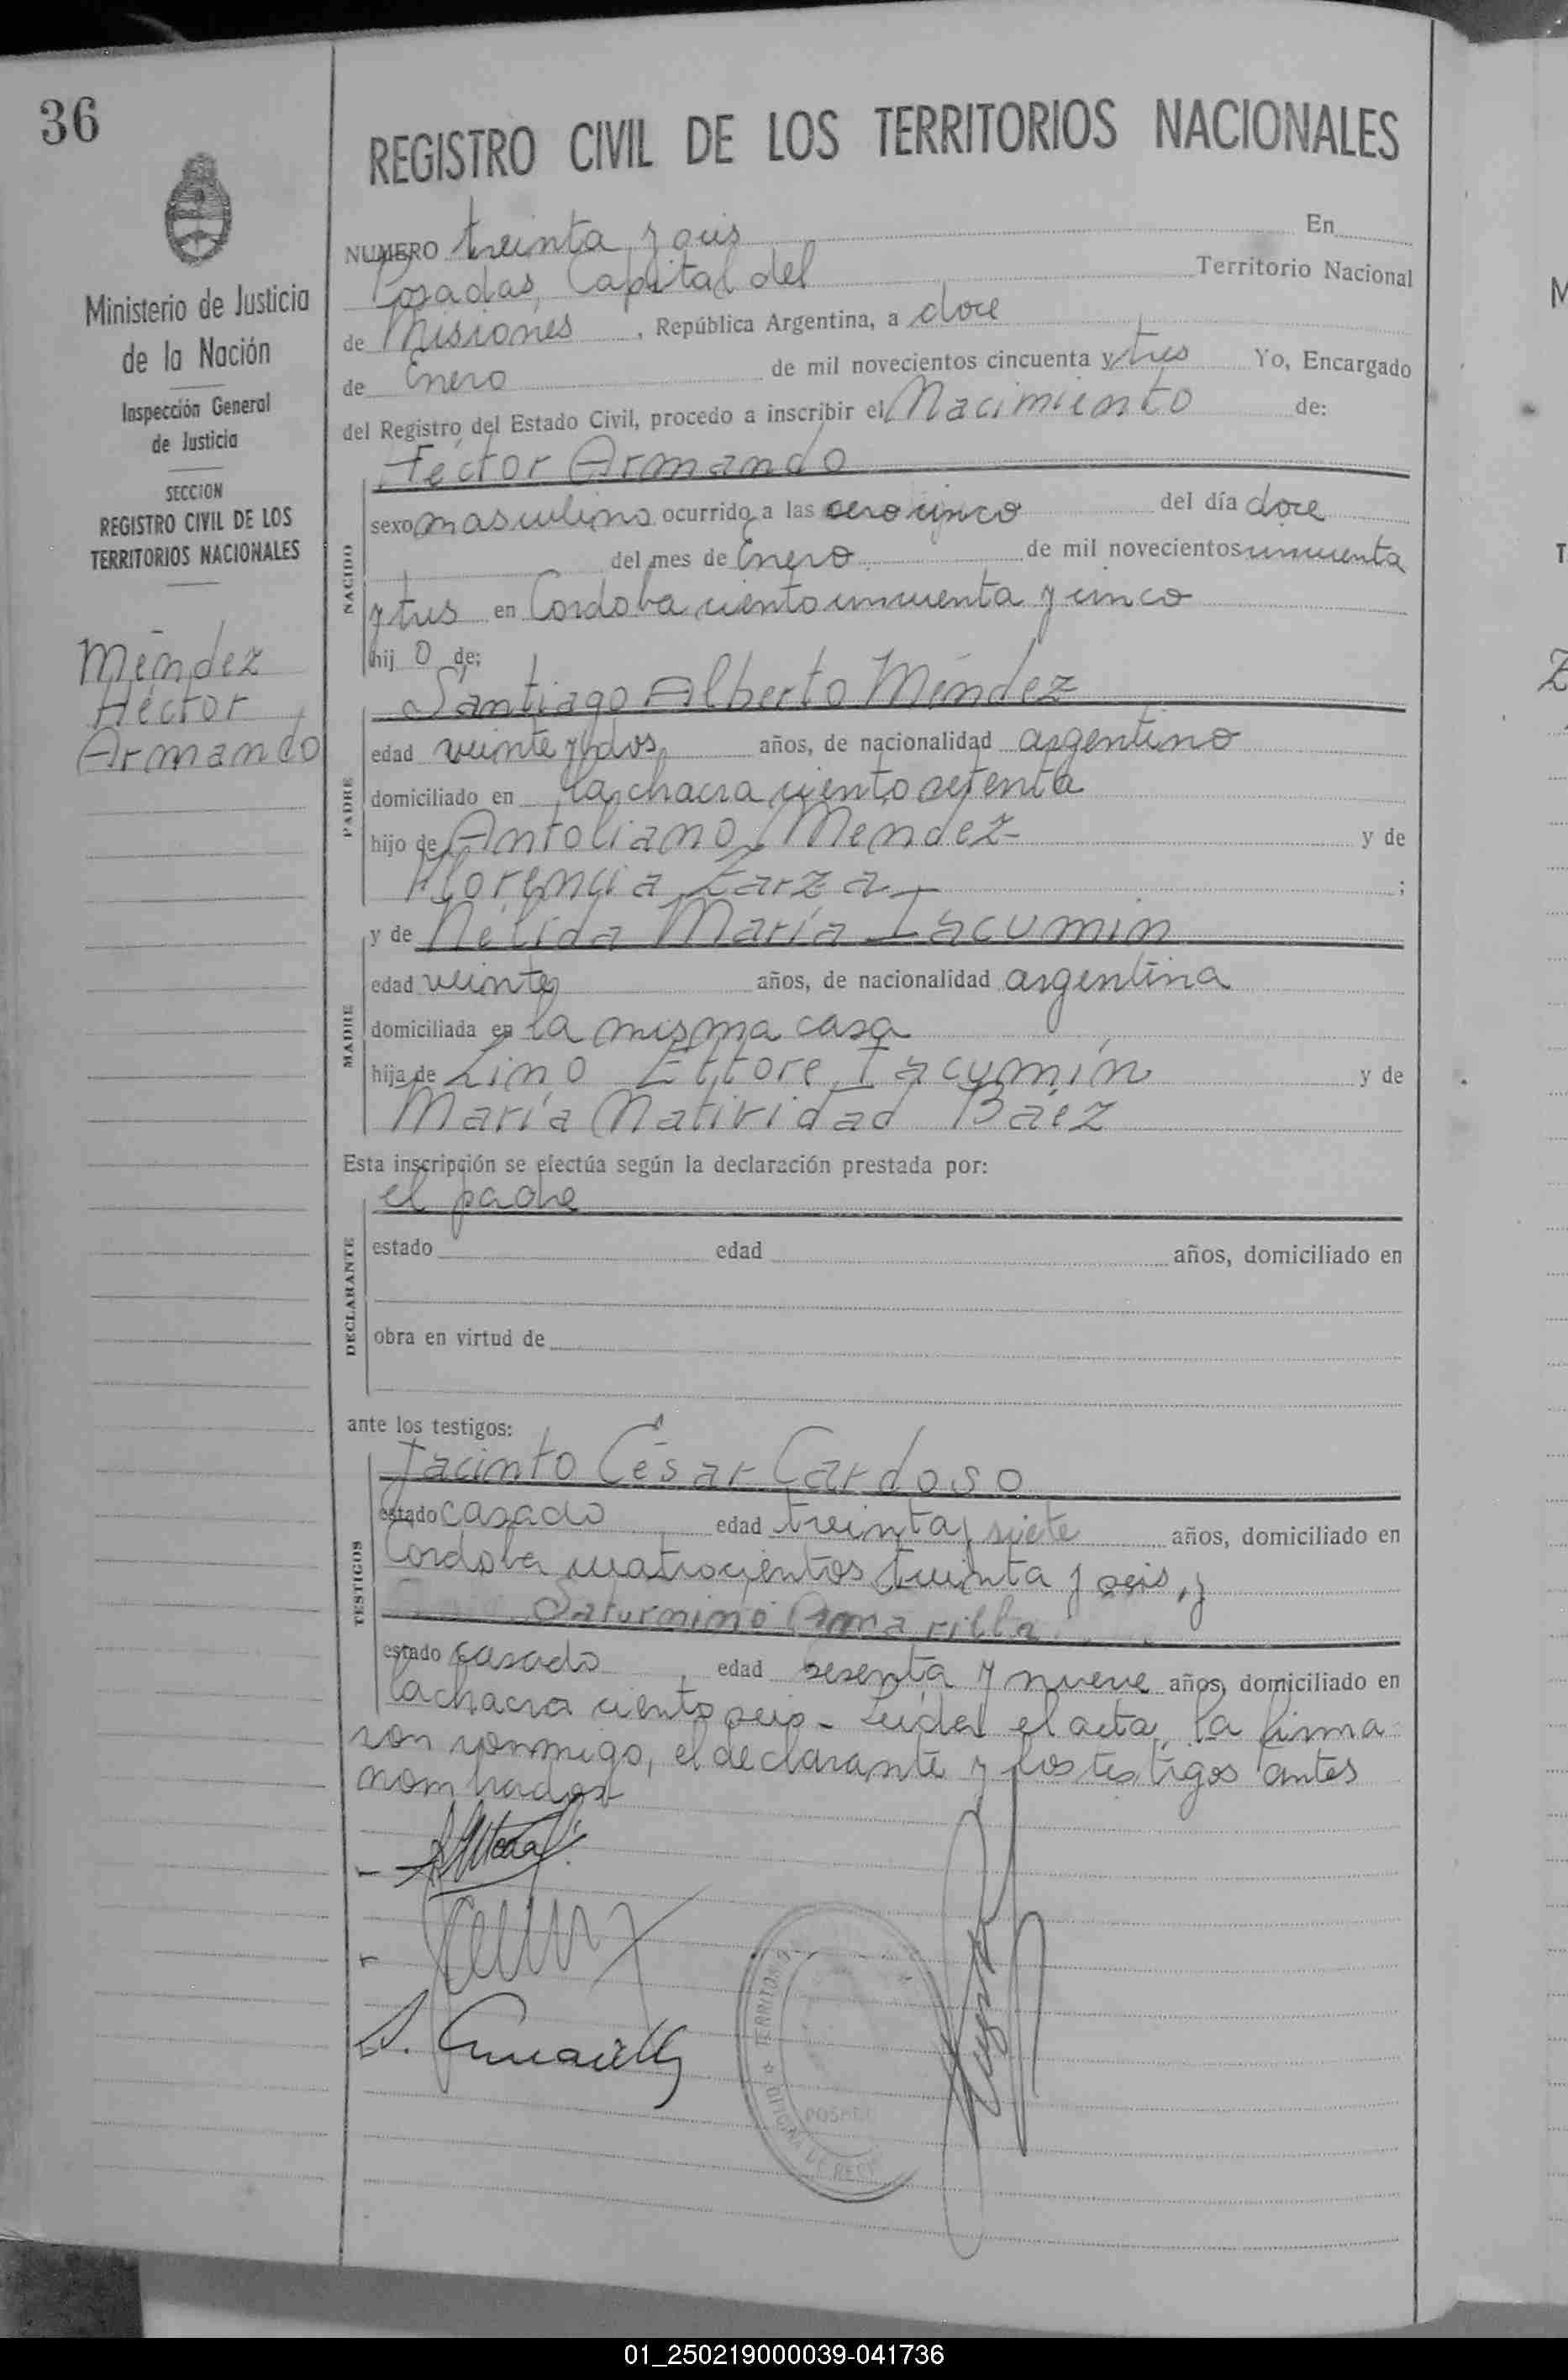 36
REGISTRO CIVIL DE LOS TERRITORIOS NACIONALES
Ministerio de Justicia
de la Nación
Inspección General
de Justicia
SECCION
REGISTRO CIVIL DE LOS
TERRITORIOS NACIONALES
Méndez
Héctor
Armando
NUMERO treinta y seis En
Posadas, Capital del Territorio Nacional
de Misiones, República Argentina, a doce
de Enero de mil novecientos cincuenta y tres Yo, Encargado
del Registro del Estado Civil, procedo a inscribir el Nacimiento de:
NACIDO
Héctor Armando
sexo masculino ocurrido a las cero cinco del día doce
del mes de Enero de mil novecientos cincuenta
y tres en Cordoba ciento cincuenta y cinco
hijo de:
PADRE
Santiago Alberto Méndez
edad veinte y dos años, de nacionalidad argentino
domiciliado en la chacra ciento setenta
hijo de Antoliano Méndez y de
Florencia Zarza ;
MADRE
y de Nélida María Iacumin
edad veinte años, de nacionalidad argentina
domiciliada en la misma casa
hija de Lino Ettore Iacumín y de
María Natividad Báez
Esta inscripción se efectúa según la declaración prestada por:
DECLARANTE
el padre
estado edad años, domiciliado en
obra en virtud de
ante los testigos:
TESTIGOS
Jacinto César Cardoso
estado casado edad treinta y siete años, domiciliado en
Cordoba cuatrocientos treinta y seis, y
Saturnino Amarilla
estado casado, edad sesenta y nueve años, domiciliado en
la chacra ciento seis - Leida el acta, la firma
ron conmigo, el declarante y los testigos antes
nombrados
S. Amarilla
TERRITOR
OFICINA DE REG
POSADAS
01_250219000039-041736